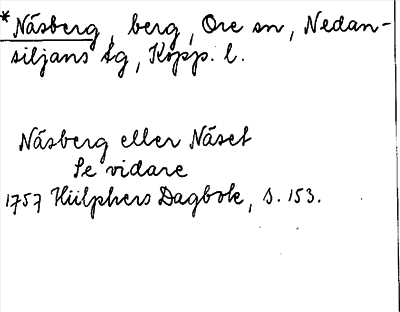 *Näsberg, berg, Ore sn, Nedan-
siljans tg, Kopp. l.
Näsberg eller Näset
Se vidare
1757 Hülphers Dagbok, s. 153.